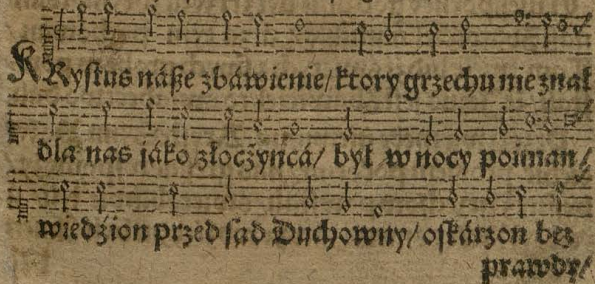 KRystus náße zbáwienie/ ktory grzechu nie znał
dla nas jáko złoczyńcá/ był w nocy poiman/
wiedźion przed sąd Duchowny/ oskárzon bez
prawdy/